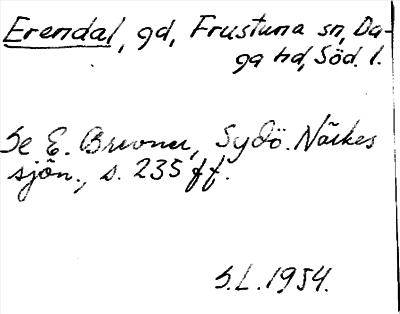 Erendal, gd, Frustuna sn, Da-
ga hd, Söd. l.
Se E. Brevner, Sydö. Närkes
sjön., s. 235 ff.
S.L. 1954.